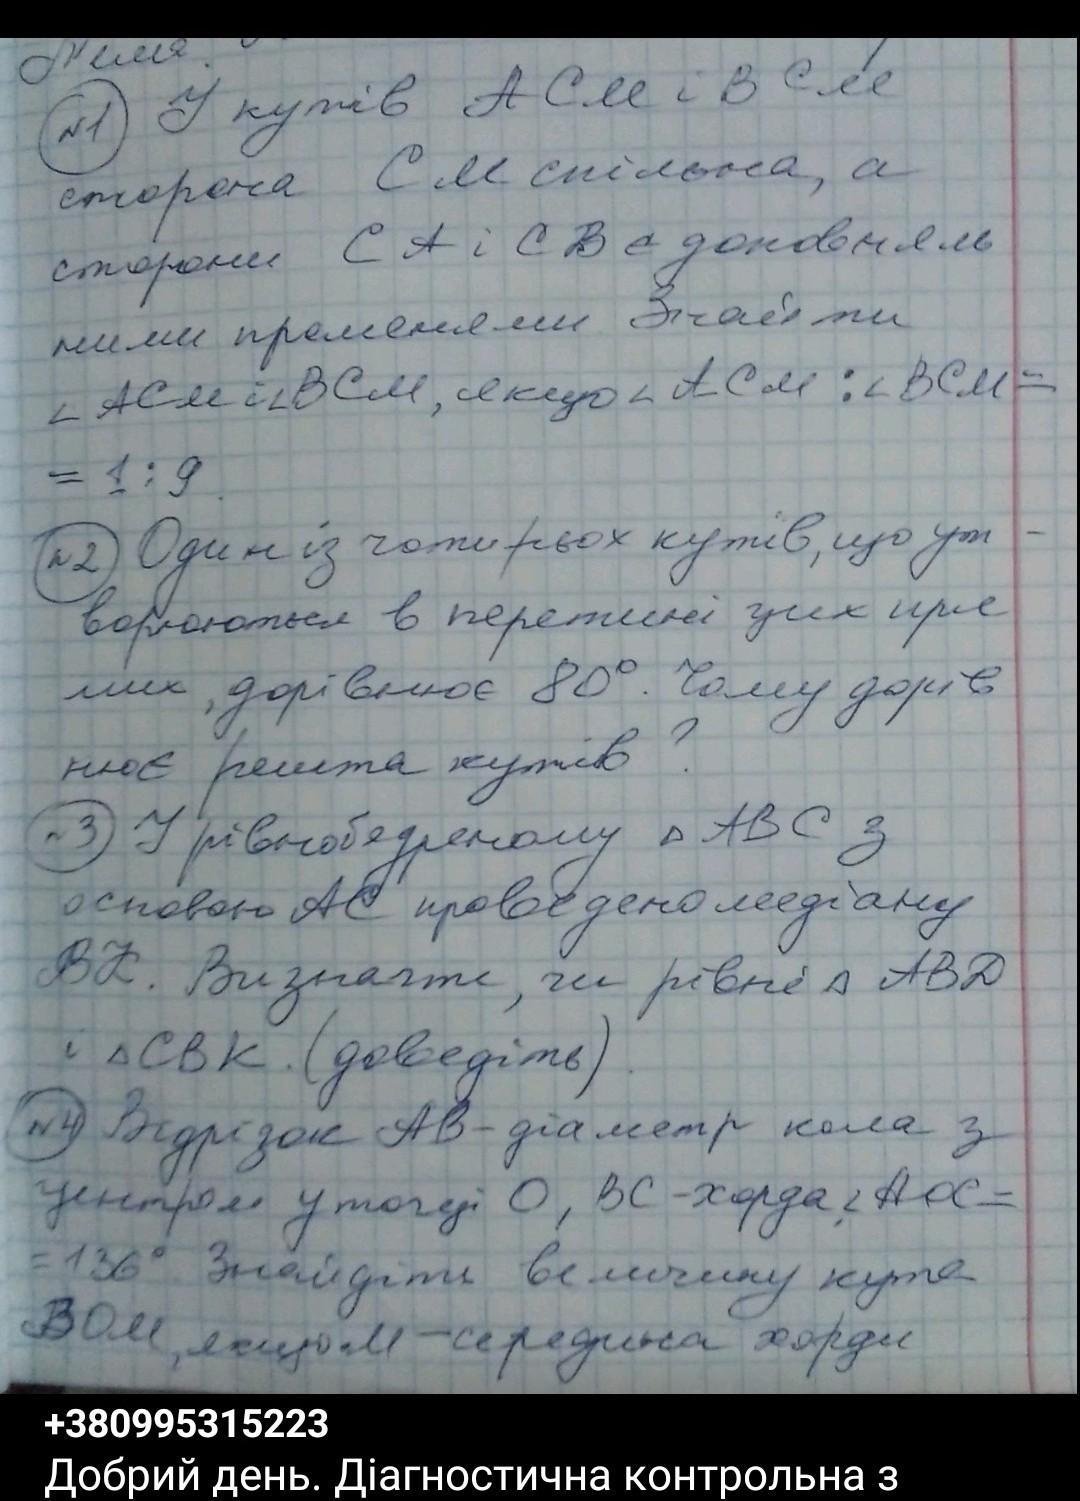 Тема.
№1 У кутів АСМ і ВСМ
сторона СМ спільна, а
сторони СА і СВ є доповняль
ними променями Знайти
∠АСМ і ∠ВСМ, якщо ∠АСМ : ∠ВСМ=
= 1 : 9.
№2 Один із чотирьох кутів, що ут-
ворюються в перетині цих пря
мих, дорівнює 80°. Чому дорів
нює решта кутів?
№3 У рівнобедреному △ АВС з
основою АС проведено медіану
ВК. Визначте, чи рівні △ АВD
і △СВК. (доведіть).
№4 Відрізок АВ-діаметр кола з
центром у точці О, ВС-хорда, ∠АОС=
=136° Знайдіть величину кута
ВОМ, якщо М-середина хорди
+380995315223
Добрий день. Діагностична контрольна з